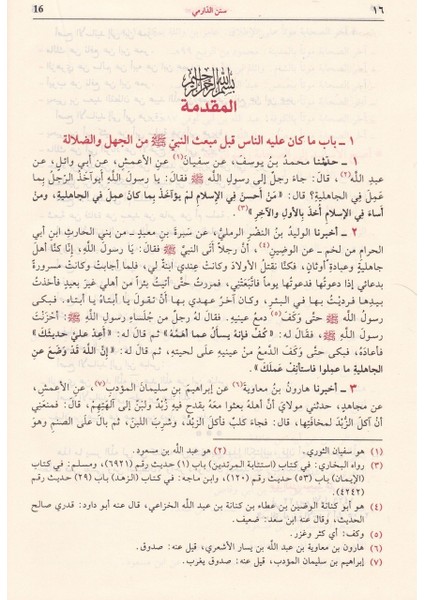 ١٦ سنن الدارمي 16
بسم الله الرحمن الرحيم
المقدمة
١ ـ باب ما كان عليه الناس قبل مبعث النبيّ ﷺ من الجهل والضلالة
١ ـ حدّثنا محمدُ بنُ يوسفَ، عن سفيانَ(١) عن الأعمشِ، عن أبي وائلٍ، عن
عبدِ اللَّهِ(٢)، قالَ: جاء رجلٌ إلى رسولِ اللَّهِ ﷺ فقالَ: يا رسولَ اللَّهِ أيُؤاخَذُ الرَّجلُ بما
عمِلَ في الجاهليةِ؟ قال: «مَنْ أحسنَ في الإسلامِ لم يؤاخَذْ بما كانَ عمِلَ في الجاهليةِ، ومنْ
أساءَ في الإسلامِ أُخذَ بالأولِ والآخرِ»(٣).
٢ ـ أخبرنا الوليدُ بنُ النضْرِ الرمليُّ، عن سَبرةَ بنِ معبدٍ ـ من بني الحارثِ ابن أبي
الحرامِ من لَخمٍ ـ عن الوَضينِ(٤)، أن رجلاً أتى النبيَّ ﷺ فقالَ: يا رسولَ اللَّهِ، إنَّا كنَّا أهلَ
جاهليةٍ وعبادةِ أوثانٍ، فكنَّا نقتلُ الأولادَ وكانت عندِي ابنةٌ لي، فلما أجابتْ وكانتْ مسرورةً
بدعائي إذا دعوتُها فدعوتُها يوماً فاتَّبعَتْني، فمررتُ حتَّى أتيتُ بئراً من أهلي غيرَ بعيدٍ فأخذتُ
بيدِها فردَّيْتُ بها في البئرِ، وكان آخرَ عهدي بها أنْ تقولَ يا أبتاهُ يا أبتاهُ. فبكى
رسولُ اللَّهِ ﷺ حتَّى وَكَفَ(٥) دمعُ عينيهِ. فقالَ لهُ رجلٌ من جُلَساءِ رسولِ اللَّهِ ﷺ: أحْزَنْتَ
رسولَ اللَّهِ ﷺ، فقالَ له: «كُفَّ فإنه يسألُ عما أهمَّهُ» ثم قالَ له: «أعِدْ عليَّ حديثَكَ»
فأعادَهُ، فبكى حتَّى وَكَفَ الدَّمعُ منْ عينيهِ على لحيتهِ، ثم قالَ له: «إنَّ اللَّهَ قدْ وَضَعَ عن
الجاهليةِ ما عمِلُوا فاستأنِفْ عمَلَكَ».
٣ ـ أخبرنا هارونُ بنُ معاويةَ(٦) عن إبراهيمَ بنِ سليمانَ المؤدبِ(٧)، عن الأعمشِ،
عن مجاهدٍ، حدثني مولايَ أنَّ أهلهُ بعثُوا معهُ بقدحٍ فيهِ زُبْدٌ ولبنٌ إلى آلهتِهِمْ، قالَ: فمنعَنِي
أنْ آكلَ الزُّبْدَ لمخافَتِها، قال: فجاءَ كلبٌ فأكَلَ الزُّبْدَ، وشرِبَ اللبنَ، ثم بالَ على الصَّنمِ وهوَ
(١) هو سفيان الثوري. (٢) هو عبد اللَّه بن مسعود.
(٣) رواه البخاري: في كتاب (استتابة المرتدين) باب (١) حديث رقم (٦٩٢١)، ومسلم: في كتاب
(الإيمان) باب (٥٣) حديث رقم (١٢٠)، وابن ماجه: في كتاب (الزهد) باب (٢٩) حديث رقم
(٤٢٤٢).
(٤) هو أبو كنانة الوضين بن عطاء بن كنانة بن عبد اللَّه الخزاعي، قال عنه أبو داود: قدري صالح
الحديث، وقال عنه ابن سعد: ضعيف.
(٥) وكف: أي كثر وغزر.
(٦) هارون بن معاوية بن عبد اللَّه بن يسار الأشعري، قيل عنه: صدوق.
(٧) إبراهيم بن سليمان المؤدب، قيل عنه: صدوق يغرب.